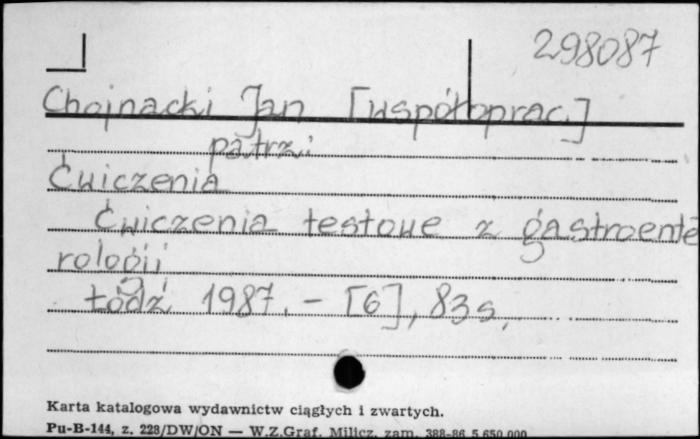 298087
Chojnacki Jan [współoprac.]
patrz:
Ćwiczenia
Ćwiczenia testowe z gastroente
rologii
Łódź 1987. – [6], 83 s.
Karta katalogowa wydawnictw ciągłych i zwartych.
Pu-B-144, z. 228/DW/ON — W.Z.Graf. Milicz, zam. 388-86 5.650.000